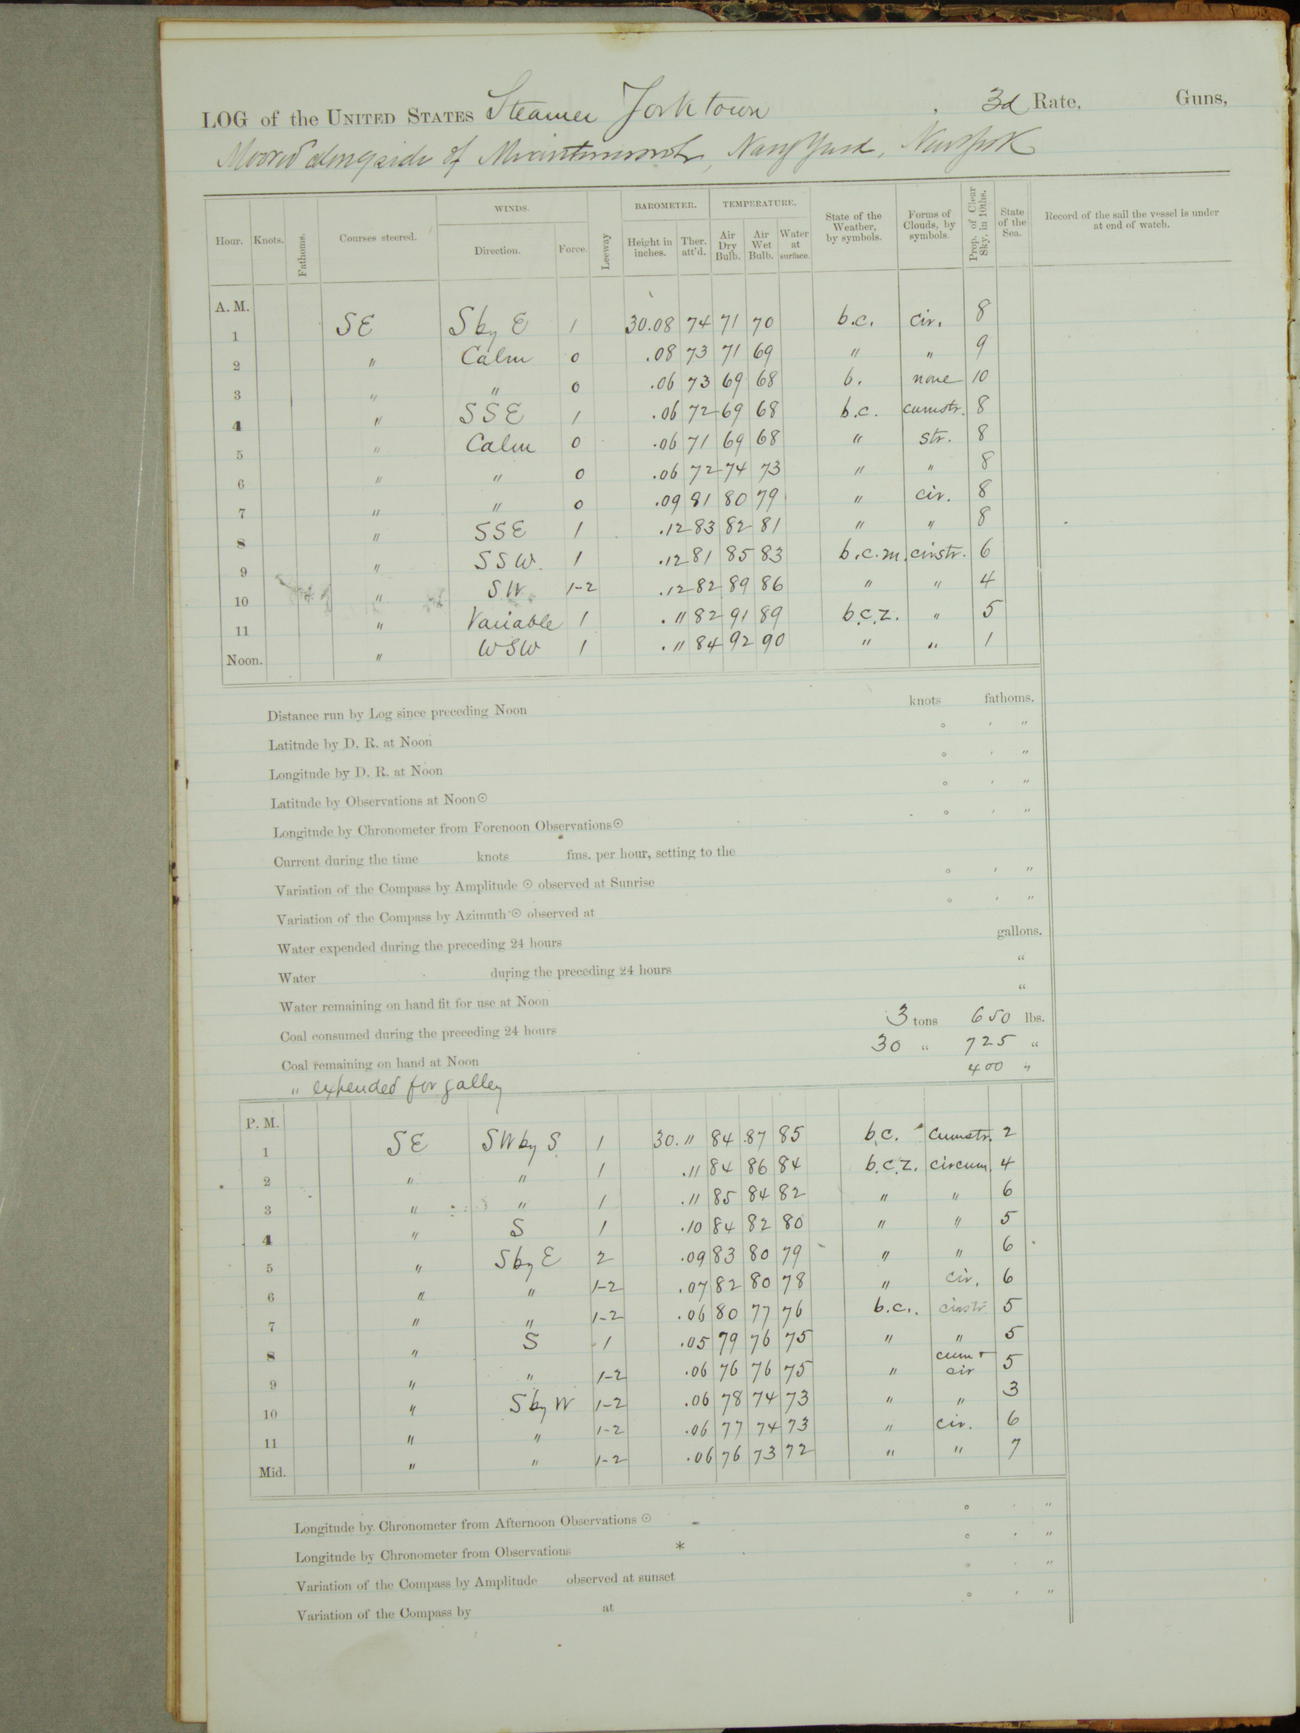 LOG of the UNITED STATES Steamer Yorktown , 3d Rate, Guns,
Moored alongside of Miantonomoh, Navy Yard, Norfolk
Hour. Knots. Fathoms. Courses steered. WINDS. Direction. Force. Leeway BAROMETER. Height in inches. Ther. att'd. TEMPERATURE. Air Dry Bulb. Air Wet Bulb. Water at surface. State of the Weather, by symbols. Forms of Clouds, by symbols. Prop. of Clear Sky, in 10ths. State of the Sea. Record of the sail the vessel is under at end of watch.
A. M.
1 SE S by E 1 30.08 74 71 70 b.c. cir. 8
2 " Calm 0 .08 73 71 69 " " 9
3 " " 0 .06 73 69 68 b. none 10
4 " SSE 1 .06 72 69 68 b.c. cumstr. 8
5 " Calm 0 .06 71 69 68 " str. 8
6 " " 0 .06 72 74 73 " " 8
7 " " 0 .09 81 80 79 " cir. 8
8 " SSE 1 .12 83 82 81 " " 8
9 " SSW. 1 .12 81 85 83 b.c.m. cirstr. 6
10 " SW 1-2 .12 82 89 86 " " 4
11 " Variable 1 .11 82 91 89 b.c.z. " 5
Noon. " WSW 1 .11 84 92 90 " " 1
Distance run by Log since preceding Noon knots fathoms.
Latitude by D. R. at Noon ° ' "
Longitude by D. R. at Noon ° ' "
Latitude by Observations at Noon ☉ ° ' "
Longitude by Chronometer from Forenoon Observations ☉ ° ' "
Current during the time knots fms. per hour, setting to the
Variation of the Compass by Amplitude ☉ observed at Sunrise ° ' "
Variation of the Compass by Azimuth ☉ observed at ° ' "
Water expended during the preceding 24 hours gallons.
Water during the preceding 24 hours "
Water remaining on hand fit for use at Noon "
Coal consumed during the preceding 24 hours 3 tons 650 lbs.
Coal remaining on hand at Noon 30 " 725 "
" expended for galley 400 "
P. M.
1 SE SW by S 1 30.11 84 87 85 b.c. cumstr. 2
2 " " 1 .11 84 86 84 b.c.z. circum. 4
3 " " 1 .11 85 84 82 " " 6
4 " S 1 .10 84 82 80 " " 5
5 " S by E 2 .09 83 80 79 " " 6
6 " " 1-2 .07 82 80 78 " cir. 6
7 " " 1-2 .06 80 77 76 b.c. cirstr 5
8 " S 1 .05 79 76 75 " " 5
9 " " 1-2 .06 76 76 75 " cum + cir 5
10 " S by W 1-2 .06 78 74 73 " " 3
11 " " 1-2 .06 77 74 73 " cir. 6
Mid. " " 1-2 .06 76 73 72 " " 7
Longitude by Chronometer from Afternoon Observations ☉ ° ' "
Longitude by Chronometer from Observations * ° ' "
Variation of the Compass by Amplitude observed at sunset ° ' "
Variation of the Compass by at ° ' "